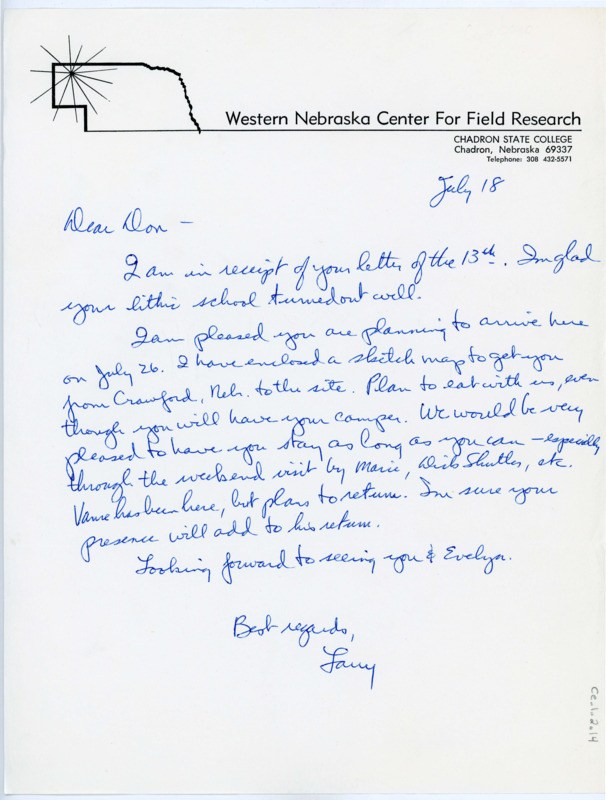 Western Nebraska Center For Field Research
CHADRON STATE COLLEGE
Chadron, Nebraska 69337
Telephone: 308 432-5571
July 18
Dear Don –
I am in receipt of your letter of the 13th. I'm glad
your lithic school turned out well.
I am pleased you are planning to arrive here
on July 26. I have enclosed a sketch map to get you
from Crawford, Neb. to the site. Plan to eat with us, even
though you will have your camper. We would be very
pleased to have you stay as long as you can – especially
through the weekend visit by Marie, Dick Shutler, etc.
Vance has been here, but plans to return. I'm sure your
presence will add to his return.
Looking forward to seeing you & Evelyn.
Best regards,
Larry
Ce-1-2.14